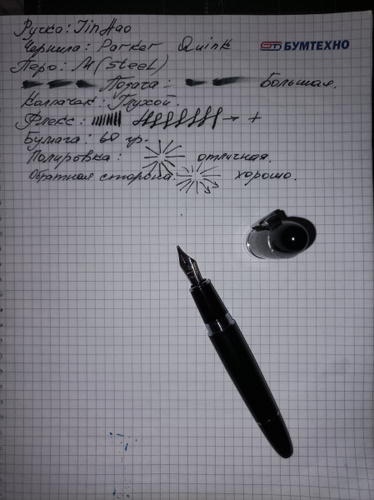 Ручка: JinHao
Чернила: Parker Quink
БУМТЕХНО
Перо: M (Steel)
Подача: Большая.
Колпачок: Глухой.
Флекс: → +
Бумага: 60 гр.
Полировка: отличная.
Обратная сторона: хорошо.